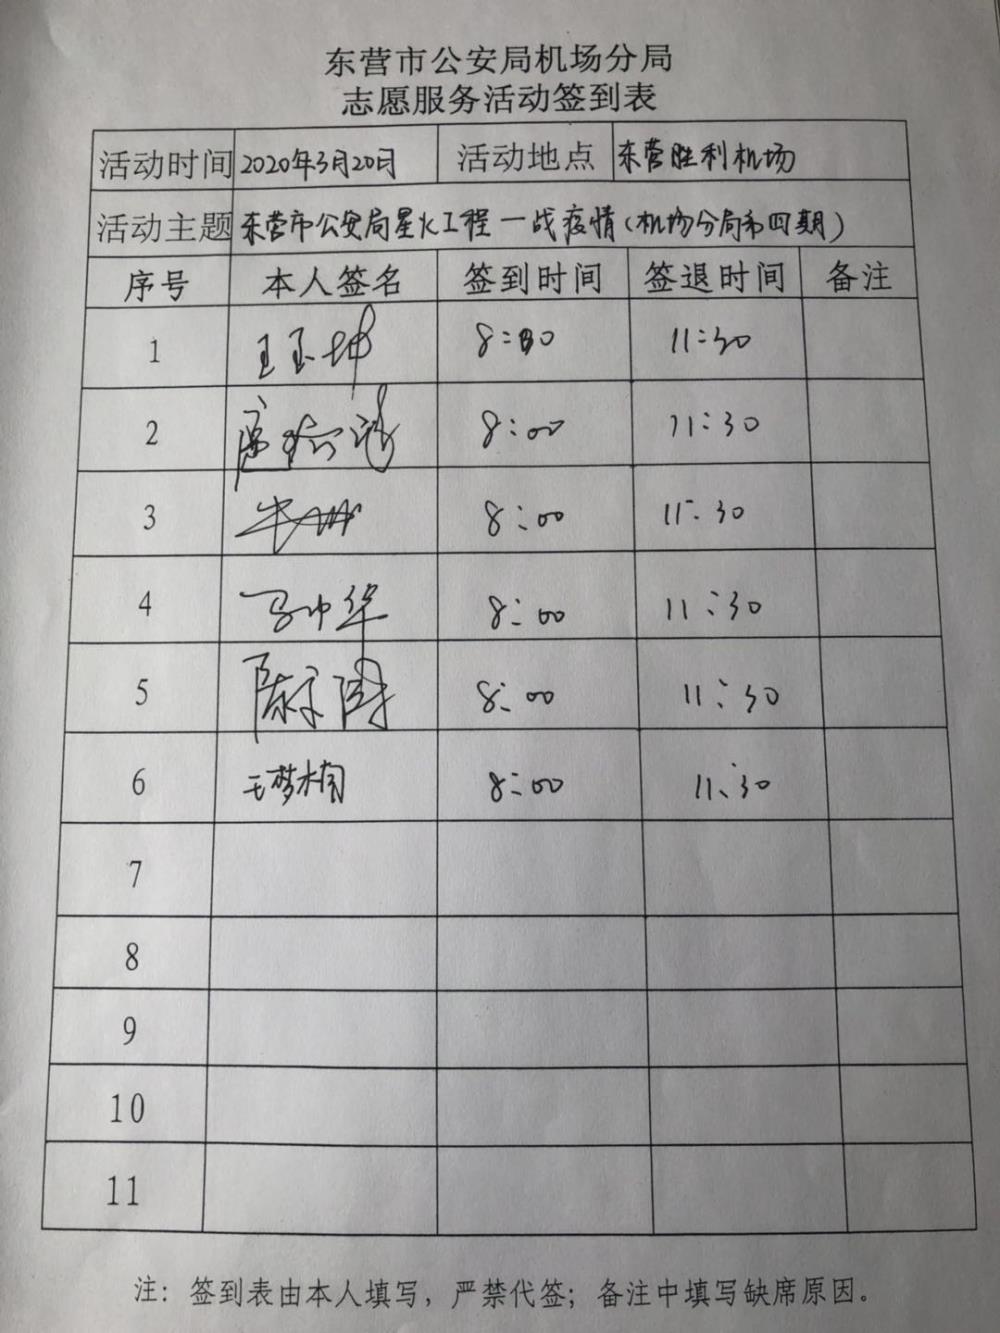 东营市公安局机场分局
志愿服务活动签到表
活动时间 2020年3月20日 活动地点 东营胜利机场
活动主题 东营市公安局星火工程一战疫情(机场分局第四期)
序号 本人签名 签到时间 签退时间 备注
1 王玉坤 8:00 11:30
2 8:00 11:30
3 8:00 11:30
4 马中华 8:00 11:30
5 8:00 11:30
6 王梦楠 8:00 11:30
7
8
9
10
11
注：签到表由本人填写，严禁代签；备注中填写缺席原因。